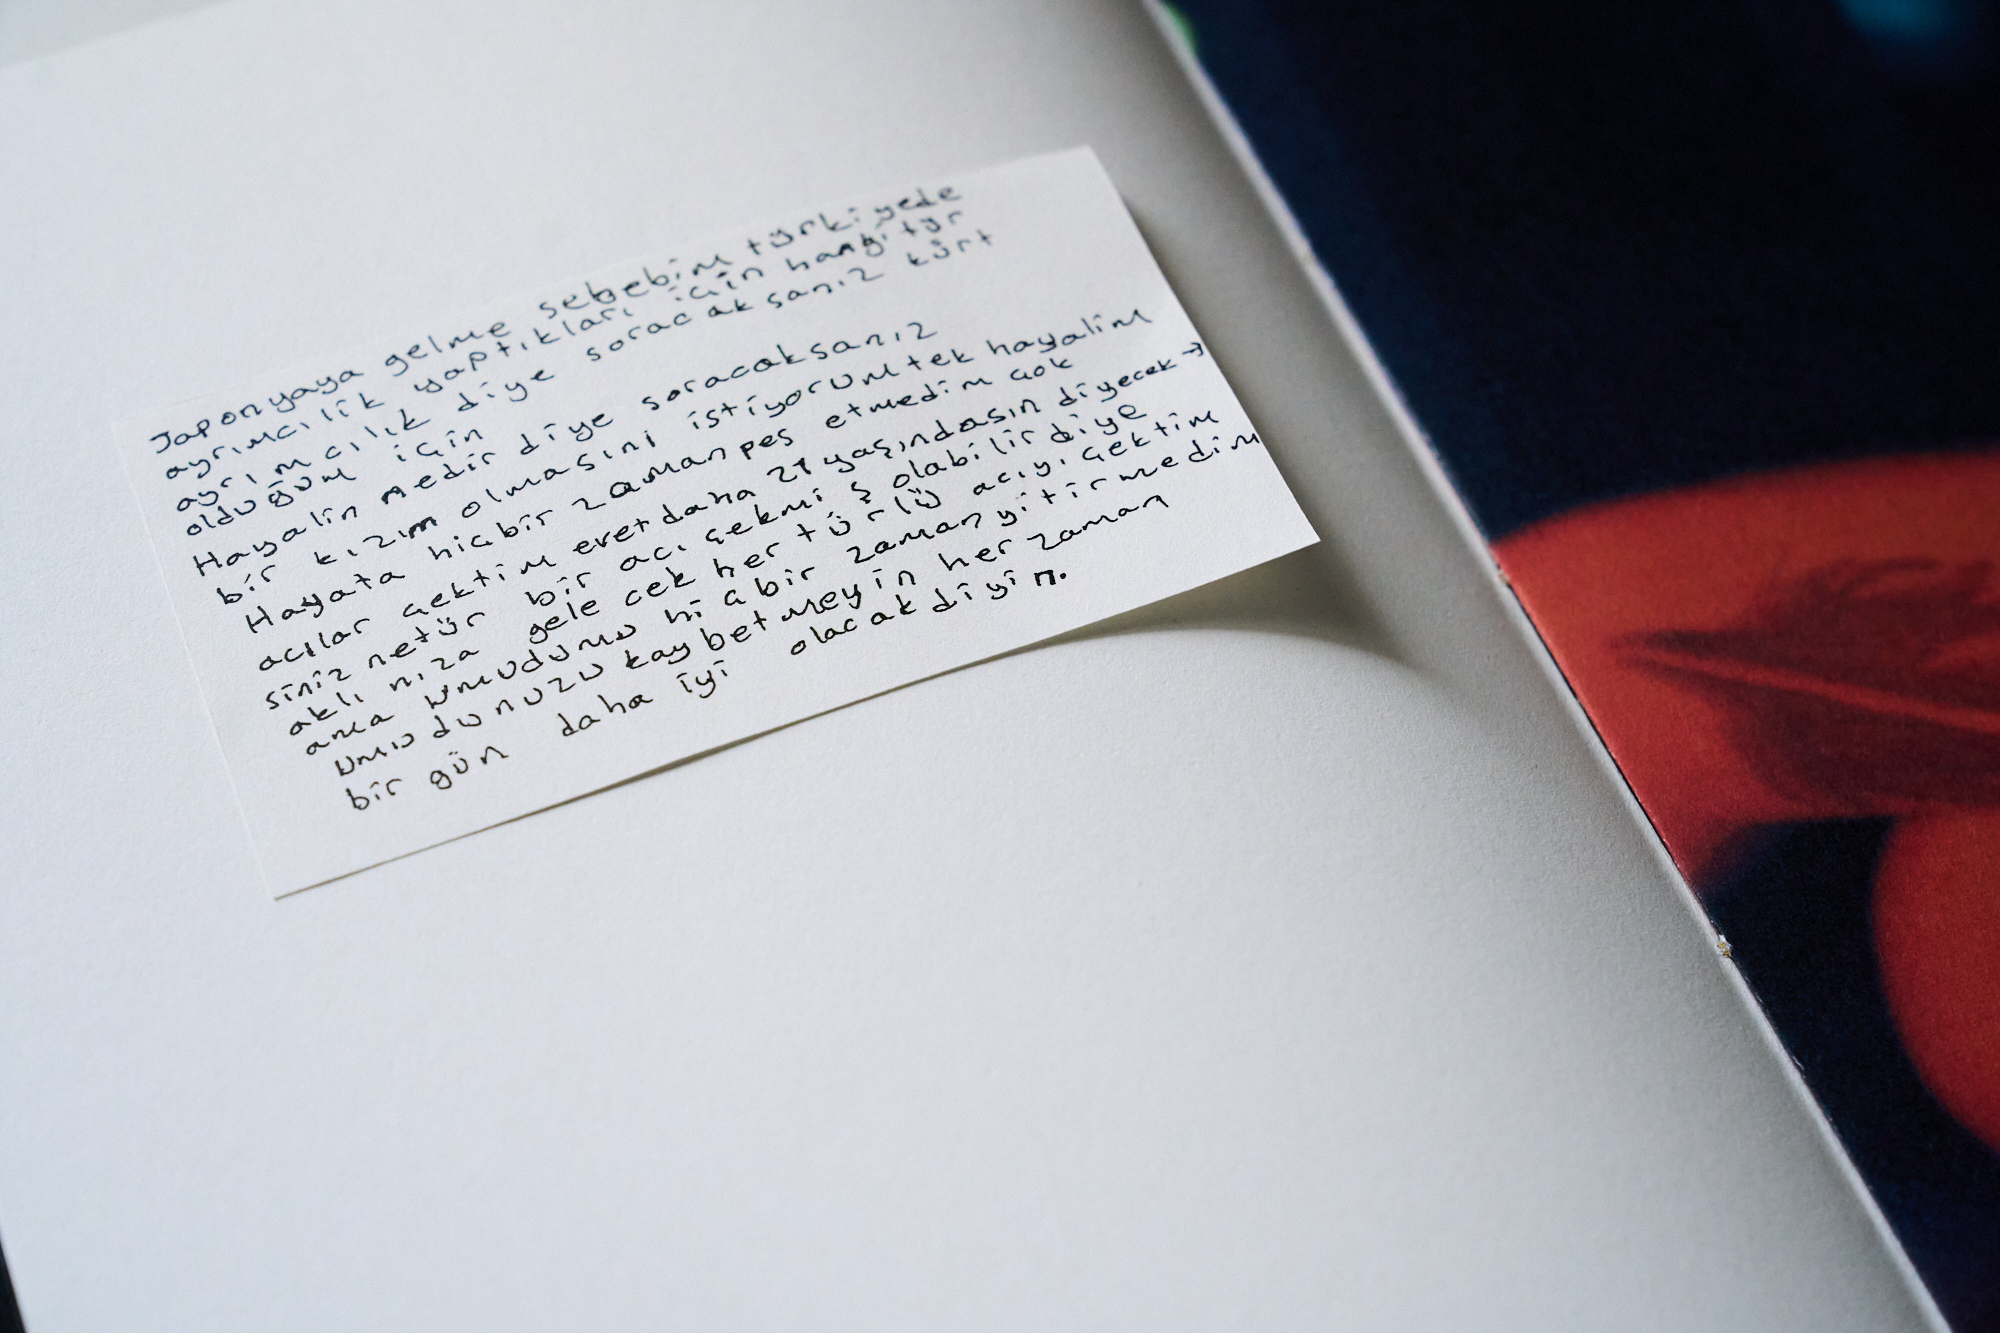 Japonyaya gelme sebebim türkiyede
ayrımcılık yaptıkları için hangi tür
ayrımcılık diye soracaksanız kürt
olduğum için
Hayalin nedir diye soracaksanız
bir kızım olmasını istiyorum tek hayalim
Hayata hiçbir zaman pes etmedim çok
acılar çektim evet daha 21 yaşındasın diyecek→
siniz ne tür bir acı çekmiş olabilir diye
aklınıza gelecek her türlü acıyı çektim
ama umudumu hiçbir zaman yitirmedim
umudunuzu kaybetmeyin her zaman
bir gün daha iyi olacak diyin.